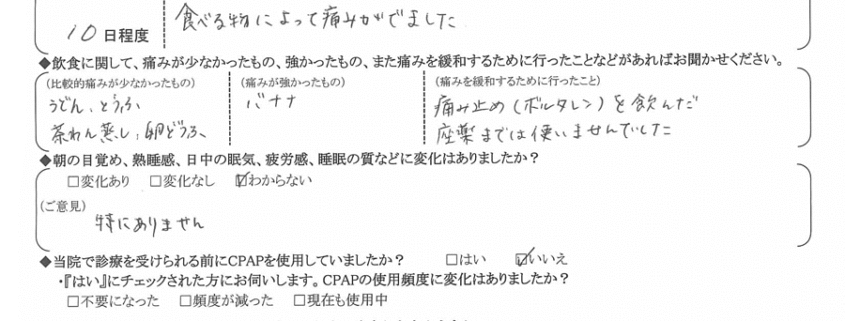 10日程度 食べる物によって痛みがでました
◆飲食に関して、痛みが少なかったもの、強かったもの、また痛みを緩和するために行ったことなどがあればお聞かせください。
(比較的痛みが少なかったもの) (痛みが強かったもの) (痛みを緩和するために行ったこと)
うどん、とうふ バナナ 痛み止め(ボルタレン)を飲んだ
茶わん蒸し、卵どうふ、 座薬までは使いませんでした
◆朝の目覚め、熟睡感、日中の眠気、疲労感、睡眠の質などに変化はありましたか？
□変化あり □変化なし ☑わからない
(ご意見)
特にありません
◆当院で診療を受けられる前にCPAPを使用していましたか？ □はい ☑いいえ
・『はい』にチェックされた方にお伺いします。CPAPの使用頻度に変化はありましたか？
□不要になった □頻度が減った □現在も使用中